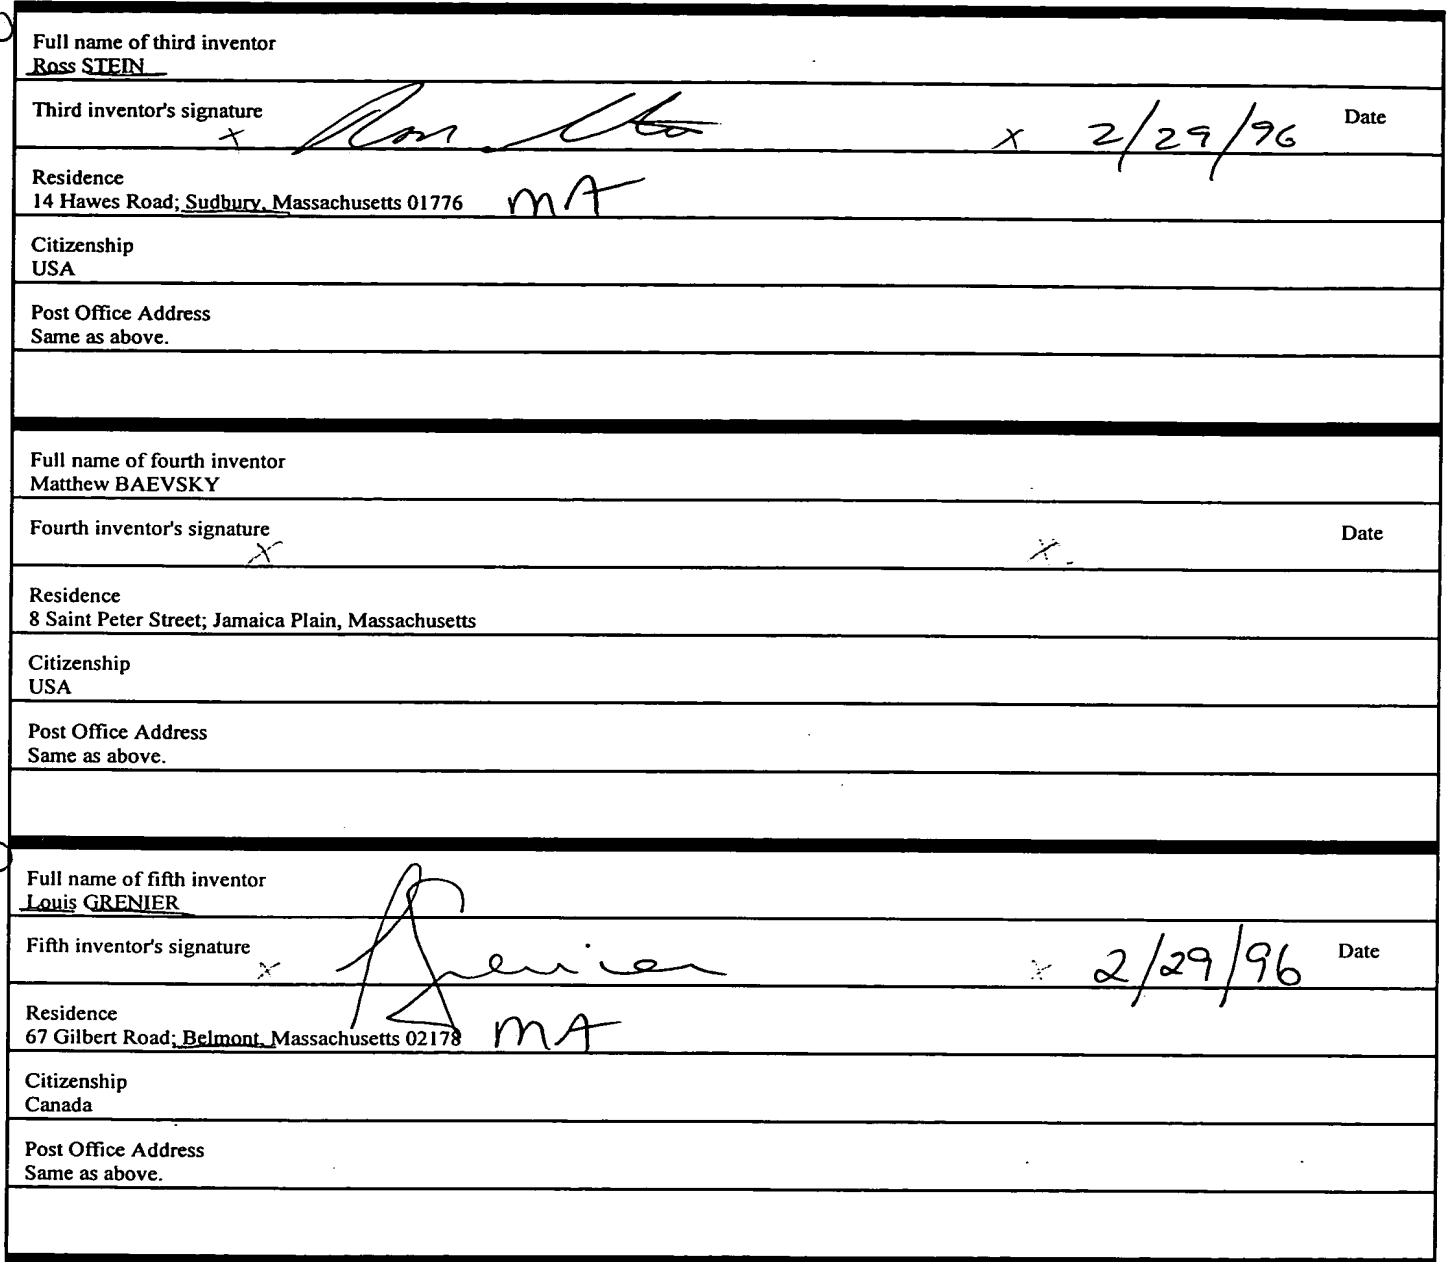 Full name of third inventor
Ross STEIN
Third inventor's signature x x 2/29/96 Date
Residence
14 Hawes Road; Sudbury, Massachusetts 01776 MA
Citizenship
USA
Post Office Address
Same as above.
Full name of fourth inventor
Matthew BAEVSKY
Fourth inventor's signature x x Date
Residence
8 Saint Peter Street; Jamaica Plain, Massachusetts
Citizenship
USA
Post Office Address
Same as above.
Full name of fifth inventor
Louis GRENIER
Fifth inventor's signature x Grenier x 2/29/96 Date
Residence
67 Gilbert Road; Belmont, Massachusetts 02178 MA
Citizenship
Canada
Post Office Address
Same as above.